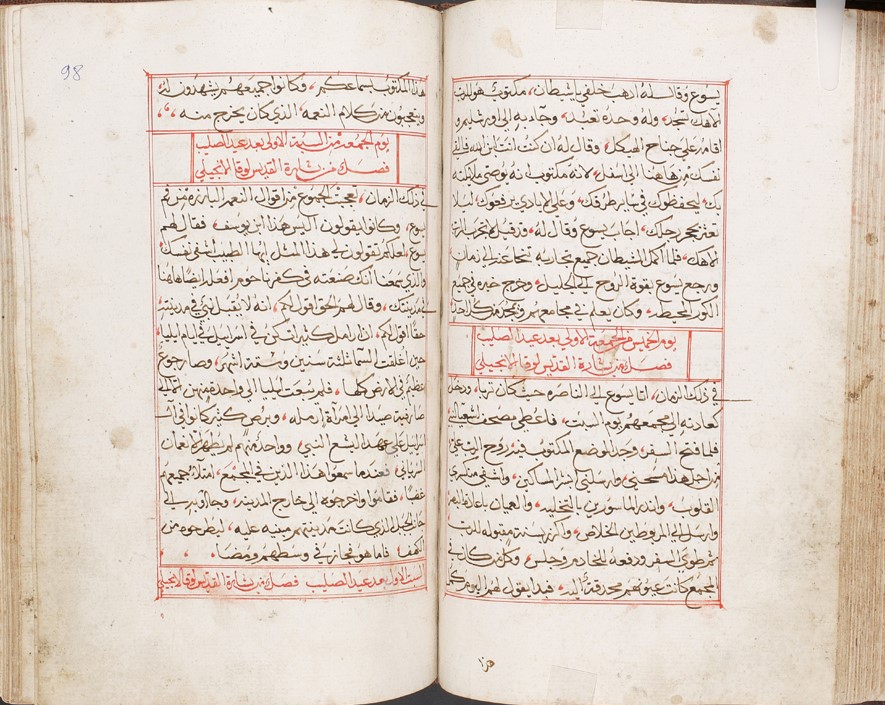 يسوع وقال له اذهب خلفي يا شيطان، مكتوب هو للرب
الاهك تسجد، وله وحده تعبد، وجآ به الى اورشليم و
اقامه على جناح الهيكل، وقال له ان كنت انت ابن الله فالقي
نفسك من هاهنا الى اسفل، لانه مكتوب انه يوصي ملايكته
بك، ليحفظوك في ساير طرقك، وعلى الايادي يرفعوك ليلا
تعثر بحجر رجلك، اجاب يسوع وقال له، وقد قيل لا تجرب الرب
الاهك، فلما اكمل الشيطان جميع تجاربه تنحا عنه الى زمان
ورجع يسوع بقوة الروح الى الجليل، وخرج خبره في جميع
الكور المحيطه، وكان يعلم في مجامعهم ويمجد من كل احد
يوم الخميس من الجمعه الاولى بعد عيد الصليب
فصل من بشارة القديس لوقا الانجيلي
في ذلك الزمان، اتا يسوع الى الناصره حيث كان تربا، ودخل
كعادته الى مجمعهم يوم السبت، فاعطي مصحف اشعيا النبي
فلما فتح السفر، وجد الموضع المكتوب فيه، روح الرب علي
من اجل هذا مسحني، وارسلني ابشر المساكين، واشفي منكسري
القلوب، وانذر الماسورين بالتخليه، والعميان
وارسل الى المربوطين الخلاص، واكرز سنة مقبوله للرب
ثم طوى السفر ودفعه للخادم وجلس، وكل من كان في
المجمع كانت عيونهم محدقة اليه، فبدا يقول لهم اليوم كمل
هذا
98
هذا المكتوب بسماعكم، وكانوا جميعهم يشهدون له
ويتعجبون من كلام النعمه الذي كان يخرج منه
يوم الجمعه من السبة الاولى بعد عيد الصليب
فصل من بشارة القديس لوقا الانجيلي
في ذلك الزمان، تعجبت الجموع من اقوال النعمه البارزه من فم
يسوع، وكانوا يقولون اليس هذا ابن يوسف، فقال لهم
يسوع لعلكم تقولون لي هذا المثل ايها الطبيب اشفي نفسك
والذي سمعنا انك صنعته في كفرناحوم افعله ايضا هاهنا
في مدينتك، وقال لهم الحق اقول لكم، انه لا يقبل نبي في مدينته
حقا اقول لكم، ان ارامل كثيرات كن في اسراييل في ايام ايليا
حين اغلقت السما ثلثة سنين وستة اشهر، وصار جوع
عظيم في الارض كلها، فلم يبعث ايليا الى واحدة منهن الا الى
صارفية صيدا الى امراة ارمله، وبرص كثير كانوا في اسـ
راييل على عهد اليشع النبي، وواحد منهم لم يطهر الا نعمان
السرياني، فعندما سمعوا هذا الذين في المجمع، امتلا جميعهم
غضبا، فقاموا واخرجوه الى خارج المدينه، وجاؤوا به الى
حاز الجبل الذي كانت مدينتهم مبنيه عليه، ليطرحوه من
الكهف، فاما هو فجاز في وسطهم ومضا
السبت الاول بعد عيد الصليب فصل من بشارة القديس لوقا الانجيلي